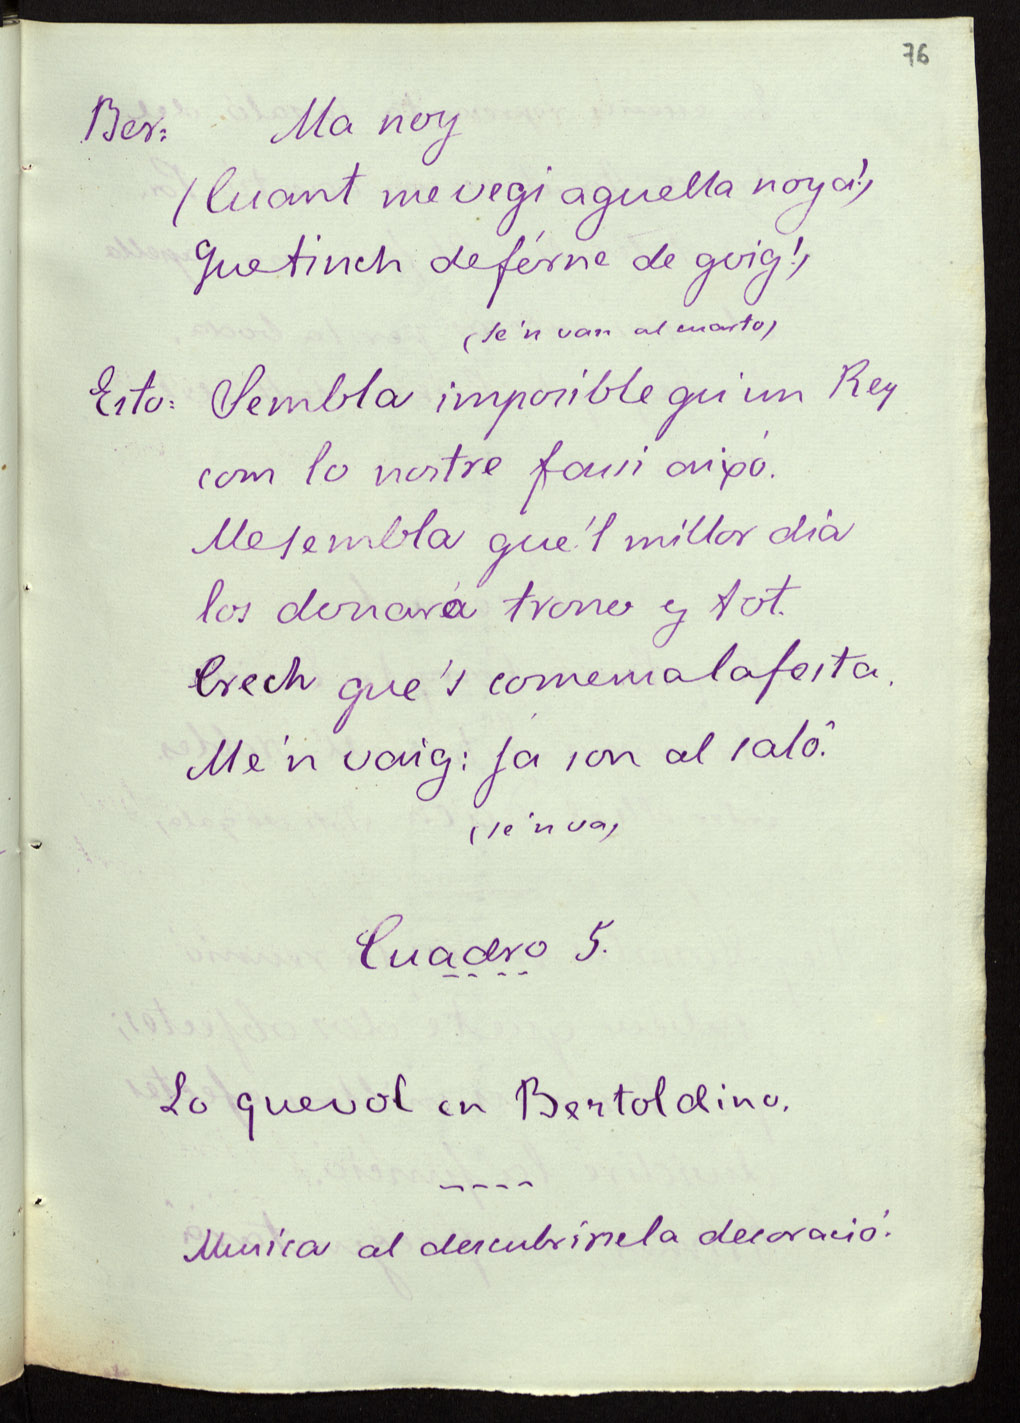 76
Ber: Ma noy
(Cuant me vegi aquella noya!)
Que tinch de férne de goig!)
(se'n van al cuarto)
Esto: Sembla imposible qu'un Rey
com lo nostre fassi aixó.
Me sembla que'l millor dia
los donará trono y tot.
Crech que's comensa la festa.
Me'n vaig: ja son al saló.
(se'n va)
Cuadro 5.
Lo que vol en Bertoldino.
Musica al descubrirse la decoració.